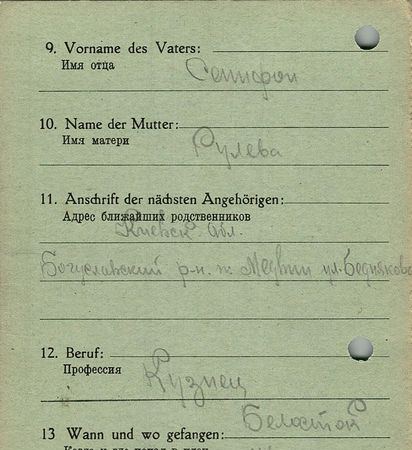 9. Vorname des Vaters:
Имя отца
10. Name der Mutter:
Имя матери
Рулева
11. Anschrift der nächsten Angehörigen:
Адрес ближайших родственников
Киевск. обл.
Богуславский р-н. м. Медвин ул. Бедняков
12. Beruf:
Профессия
Кузнец
Белосток
13 Wann und wo gefangen: